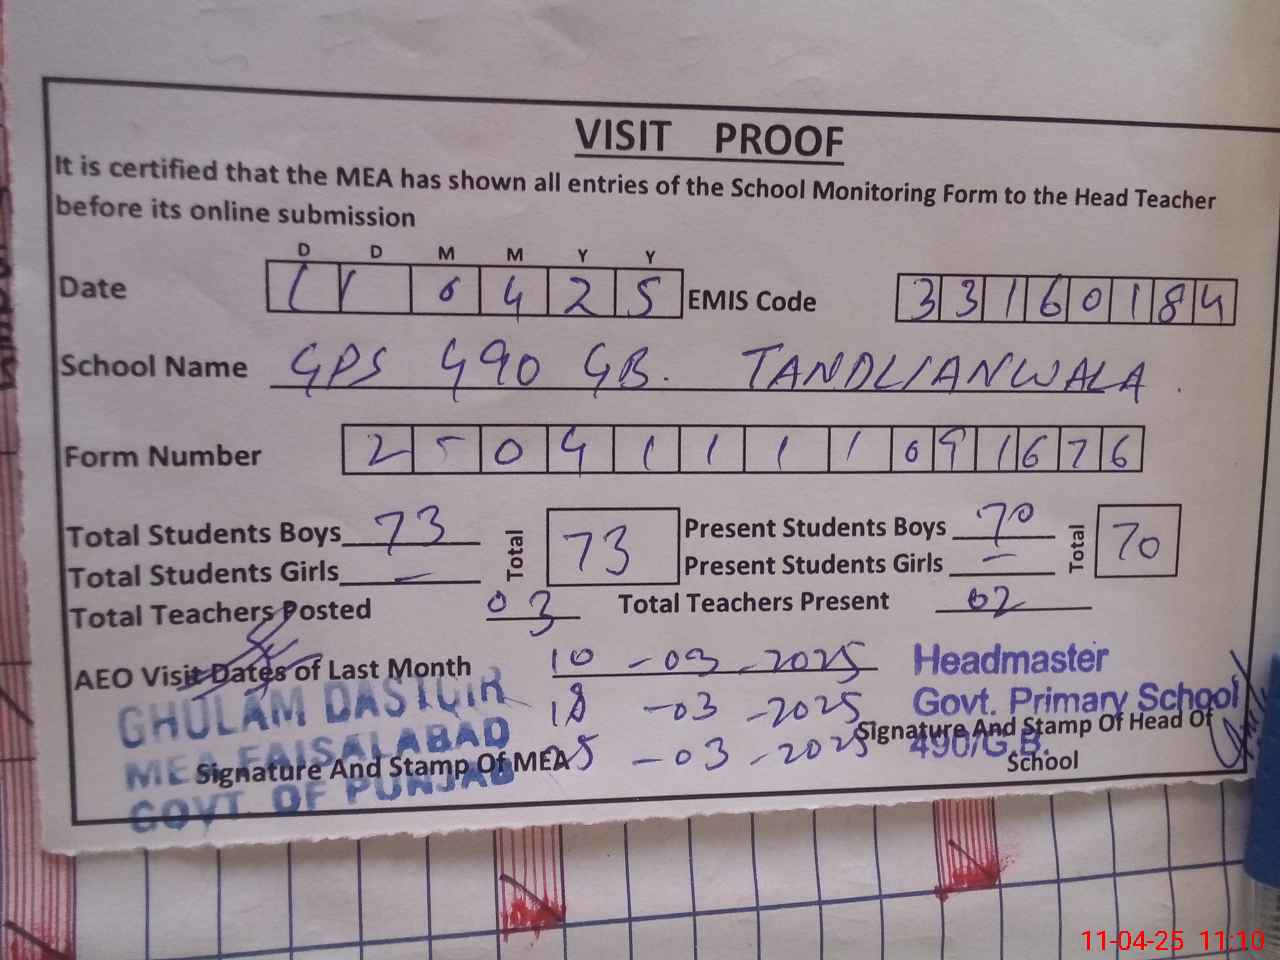 VISIT PROOF
It is certified that the MEA has shown all entries of the School Monitoring Form to the Head Teacher
before its online submission
D D M M Y Y
Date 1 1 0 4 2 5 EMIS Code 3 3 1 6 0 1 8 4
School Name GPS 490 GB. TANDLIANWALA.
Form Number 2 5 0 4 1 1 1 1 0 9 1 6 7 6
Total Students Boys 73 Total 73 Present Students Boys 70 Total 70
Total Students Girls – Present Students Girls –
Total Teachers Posted 03 Total Teachers Present 02
AEO Visit Dates of Last Month 10-03-2025
18-03-2025
25-03-2025
GHULAM DASTGIR
MEA FAISALABAD
GOVT. OF PUNJAB
Signature And Stamp Of MEA
Headmaster
Govt. Primary School
490/G.B.
Signature And Stamp Of Head Of
School
11-04-25 11:10